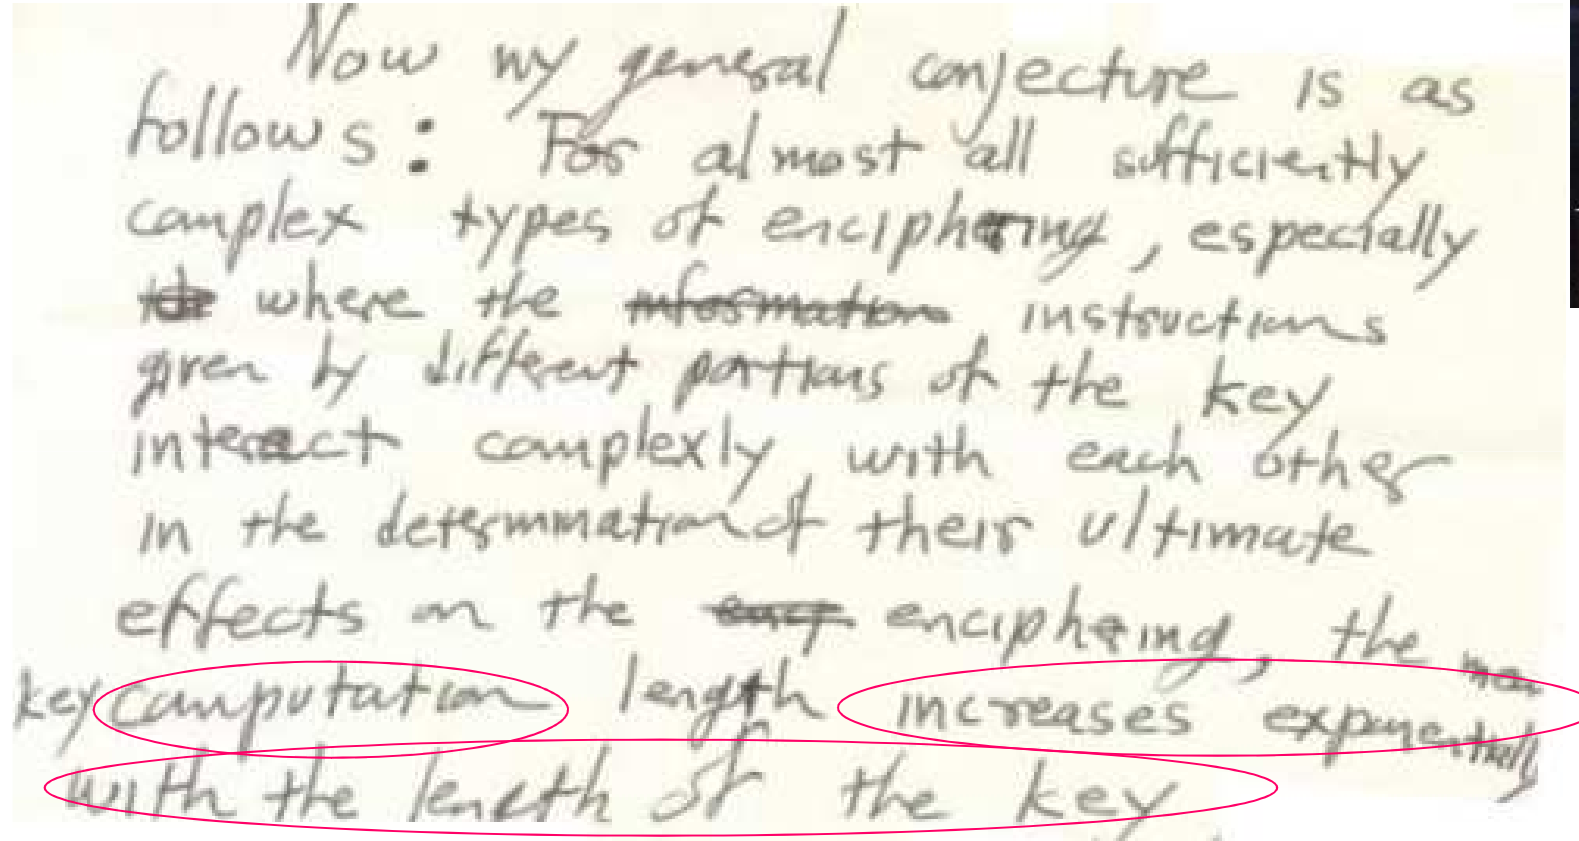 Now my general conjecture is as
follows: For almost all sufficiently
complex types of enciphering, especially
where the information instructions
given by different portions of the key
interact complexly with each other
in the determination of their ultimate
effects on the enciphering, the
key computation length increases exponentially
with the length of the key